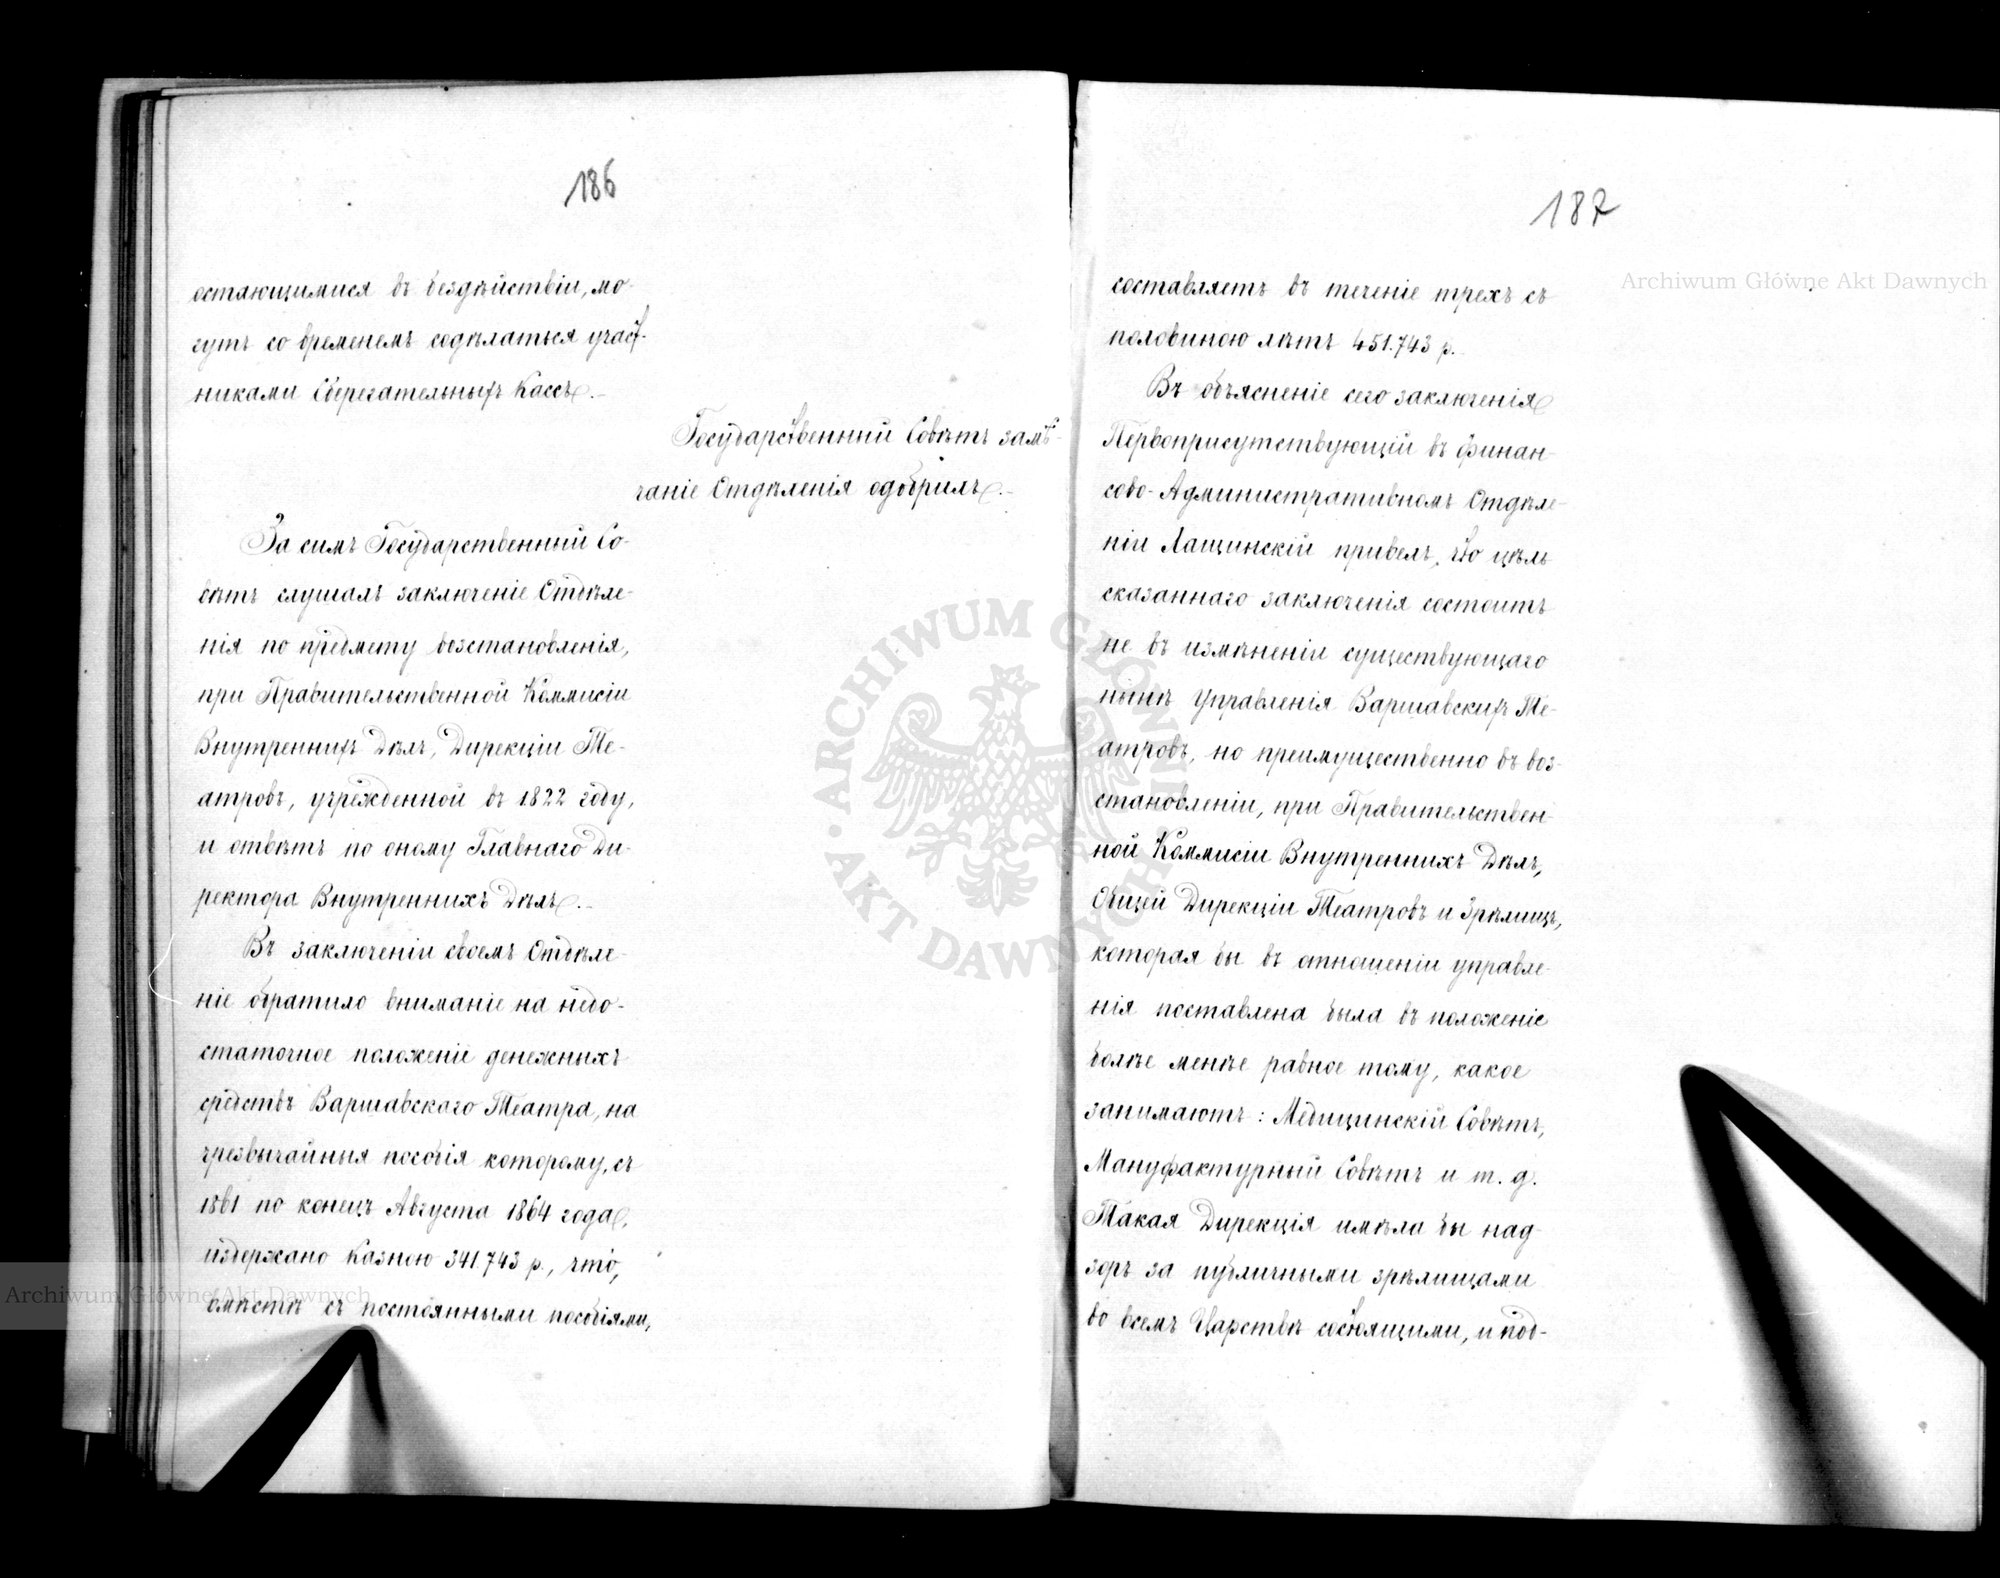 186
остающимися въ бездѣйствіи, мо-
гутъ со временемъ содѣлаться участ-
никами Сберегательныхъ Кассъ.
Государственный Совѣтъ замѣ-
чаніе Отдѣленія одобрилъ.
За симъ Государственный Со-
вѣтъ слушалъ заключеніе Отдѣле-
нія по предмету возстановленія,
при Правительственной Коммисіи
Внутреннихъ Дѣлъ, Дирекціи Те-
атровъ, учрежденной въ 1822 году,
и отвѣтъ по оному Главнаго Ди-
ректора Внутреннихъ Дѣлъ.
Въ заключеніи своемъ Отдѣле-
ніе обратило вниманіе на недо-
статочное положеніе денежныхъ
средствъ Варшавскаго Театра, на
чрезвычайныя пособія которому, съ
1861 по конецъ Августа 1864 года,
издержано Казною 341.743 р., что,
вмѣстѣ съ постоянными пособіями,
187
составляетъ въ теченіе трехъ съ
половиною лѣтъ 451.743 р.
Въ объясненіе сего заключенія
Первоприсутствующій въ Финан-
сово-Административномъ Отдѣле-
ніи Лащинскій привелъ, что цѣль
сказаннаго заключенія состоитъ
не въ измѣненіи существующаго
нынѣ Управленія Варшавскихъ Те-
атровъ, но преимущественно въ воз-
становленіи, при Правительствен-
ной Коммисіи Внутреннихъ Дѣлъ,
Общей Дирекціи Театровъ и Зрѣлищъ,
которая бы въ отношеніи управле-
нія поставлена была въ положеніе
болѣе менѣе равное тому, какое
занимаютъ: Медицинскій Совѣтъ,
Мануфактурный Совѣтъ и т. д.
Такая Дирекція имѣла бы над-
зоръ за публичными зрѣлищами
во всемъ Царствѣ состоящими, и под-
Archiwum Główne Akt Dawnych
ARCHIWUM GŁÓWNE AKT DAWNYCH
Archiwum Główne Akt Dawnych